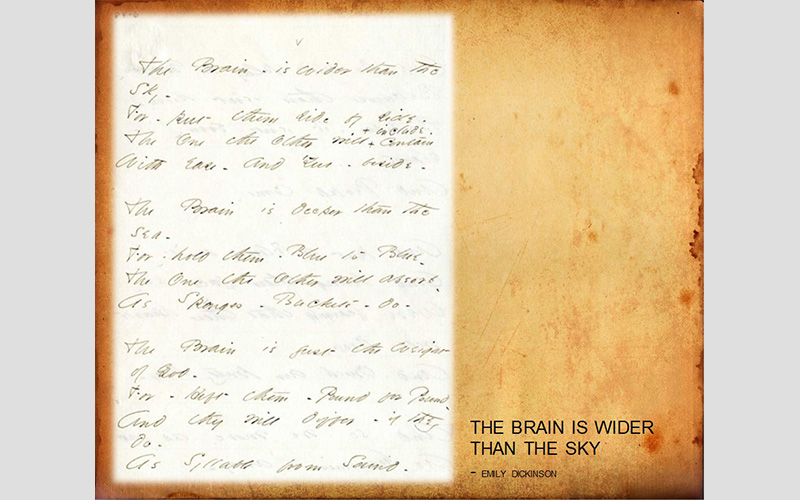 The Brain - is wider than the
Sky -
For - put them side by side -
+ include -
The One the Other will + contain
With Ease - And You - beside -
The Brain is deeper than the
Sea -
For - hold them - Blue to Blue -
The One the Other will absorb -
As Sponges - Buckets - do -
The Brain is just the weight
of God -
For - Heft them - Pound for Pound
And they will differ - if they
do -
As Syllable from Sound -
THE BRAIN IS WIDER
THAN THE SKY
- EMILY DICKINSON